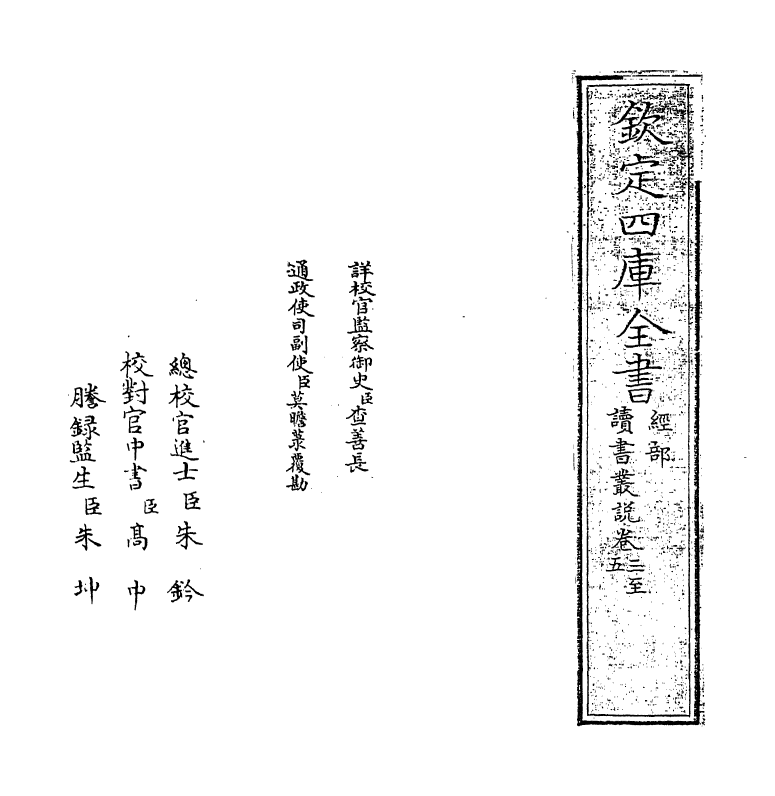 欽定四庫全書
經部
讀書叢說卷二至五
詳校官監察御史臣查善長
通政使司副使臣莫瞻菉覆勘
總校官進士臣朱鈐
校對官中書臣高中
謄録監生臣朱坤